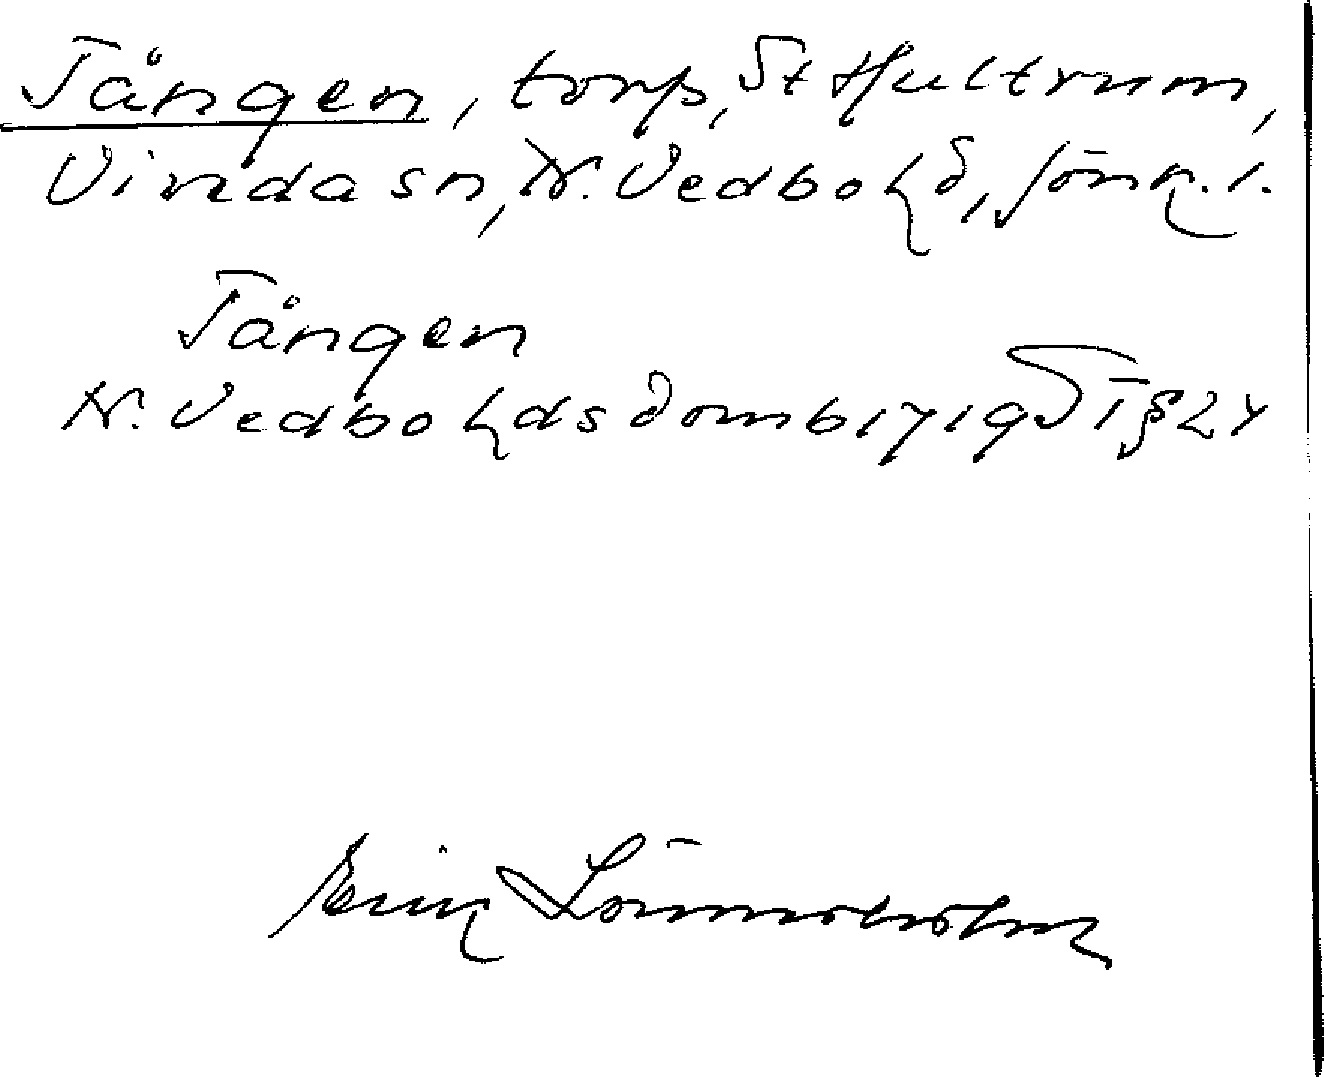 Tången, torp, St Hultrum,
Vinda sn, N. Vedbo hd, Jönk. l.
Tången
N. Vedbo hds domb 1719 ST § 24
Erik